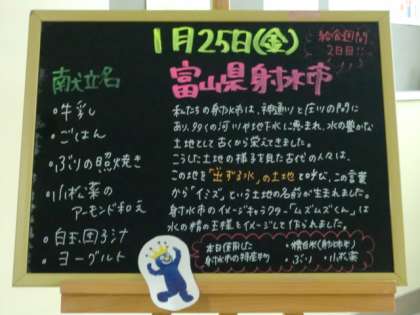 1月25日(金)
給食週間
2日目!!
献立名
・牛乳
・ごはん
・ぶりの照焼き
・小松菜の
アーモンド和え
・白玉団子汁
・ヨーグルト
富山県射水市
私たちの射水市は、神通川と庄川の間に
あり、多くの河川や地下水に恵まれ、水の豊かな
土地として古くから栄えてきました。
こうした土地の様子を見た古代の人々は、
この地を「出ずる水」の土地と呼び、この言葉
から「イミズ」という土地の名前が生まれました。
射水市のイメージキャラクター「ムズムズくん」は
水の精の王様をイメージして作られました。
本日使用した
射水市の特産物
・精白米(射水市)
・ぶり ・小松菜